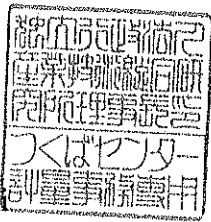 独立行政法人
産業技術総合研
究所理事長之印
つくばセンター
計量事務専用